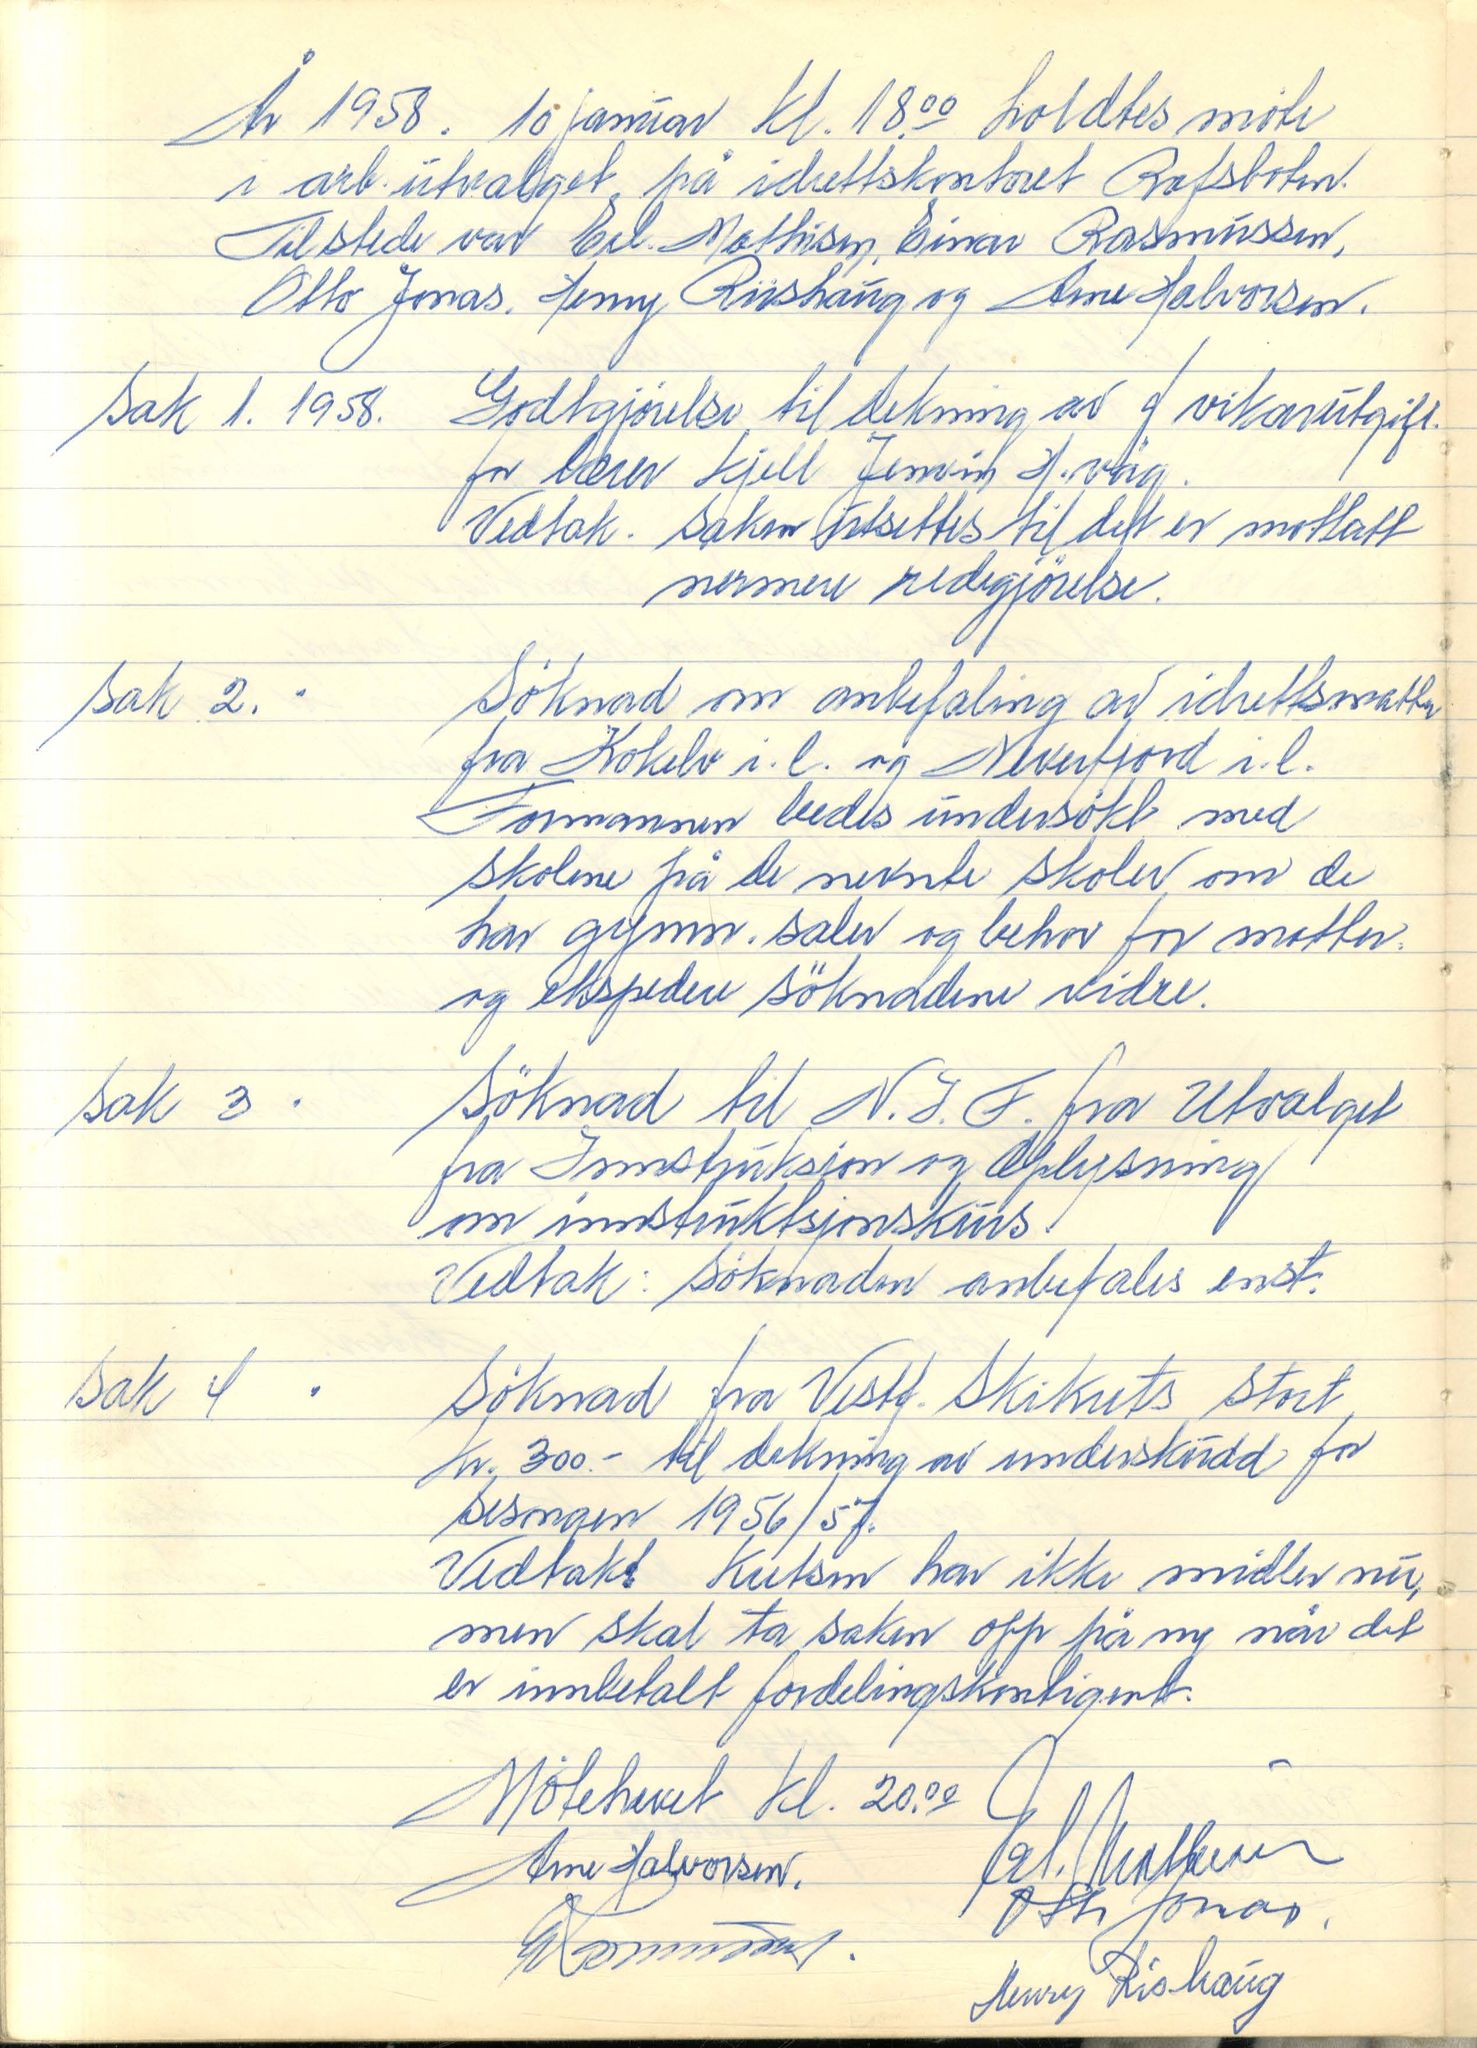 År 1958. 10 januar kl. 18.00 holdtes møte
i arb. utvalget, på idrettskontoret Rafsbotn.
Tilstede var Erl. Mathisen, Einar Rasmussen,
Otto Jonas, Henry Riishaug og Arne Halvorsen.
Sak 1. 1958. Godtgjörelse til dekning av vikarutgift.
for lærer Kjell H.våg.
Vedtak. Saken utsettes til det er mottatt
nermere redegjörelse.
Sak 2. " Söknad om anbefaling av idrettsmatter
fra Kokelv i.l. og Neverfjord i.l.
Formannen bedes undersökt med
skolene på de nevnte skoler om de
har gymn. saler og behov for matter.
og ekspedere söknadene vidre.
Sak 3 " Söknad til N.I.F. fra Utvalget
fra Innstruksjon og Oplysning
om innstruktsjonskurs.
Vedtak: Söknaden anbefales enst.
Sak 4 " Söknad fra Vestf. Skikrets stort
kr. 300.- til dekning av underskudd for
sesongen 1956/57.
Vedtak: Kretsen har ikke midler nu,
men skal ta saken opp på ny når det
er innbetalt fordelingskontigent.
Mötehevet kl. 20.00
Arne Halvorsen. Erl. Mathisen
Otto Jonas.
E Rasmussen.
Henry Rishaug